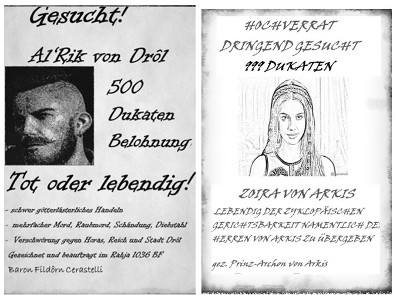 Gesucht!
Al'Rik von Drôl
500
Dukaten
Belohnung
Tot oder lebendig!
- schwer götterlästerliches Handeln
- mehrfacher Mord, Raubmord, Schändung, Diebstahl
- Verschwörung gegen Horas, Reich und Stadt Drôl
Gezeichnet und beauftragt im Rahja 1036 BF
Baron Fildôrn Cerastelli
HOCHVERRAT
DRINGEND GESUCHT
999 DUKATEN
ZOIRA VON ARKIS
LEBENDIG DER ZYKLOPÄISCHEN
GERICHTSBARKEIT NAMENTLICH DEM
HERREN VON ARKIS ZU ÜBERGEBEN
gez. Prinz-Archon von Arkis